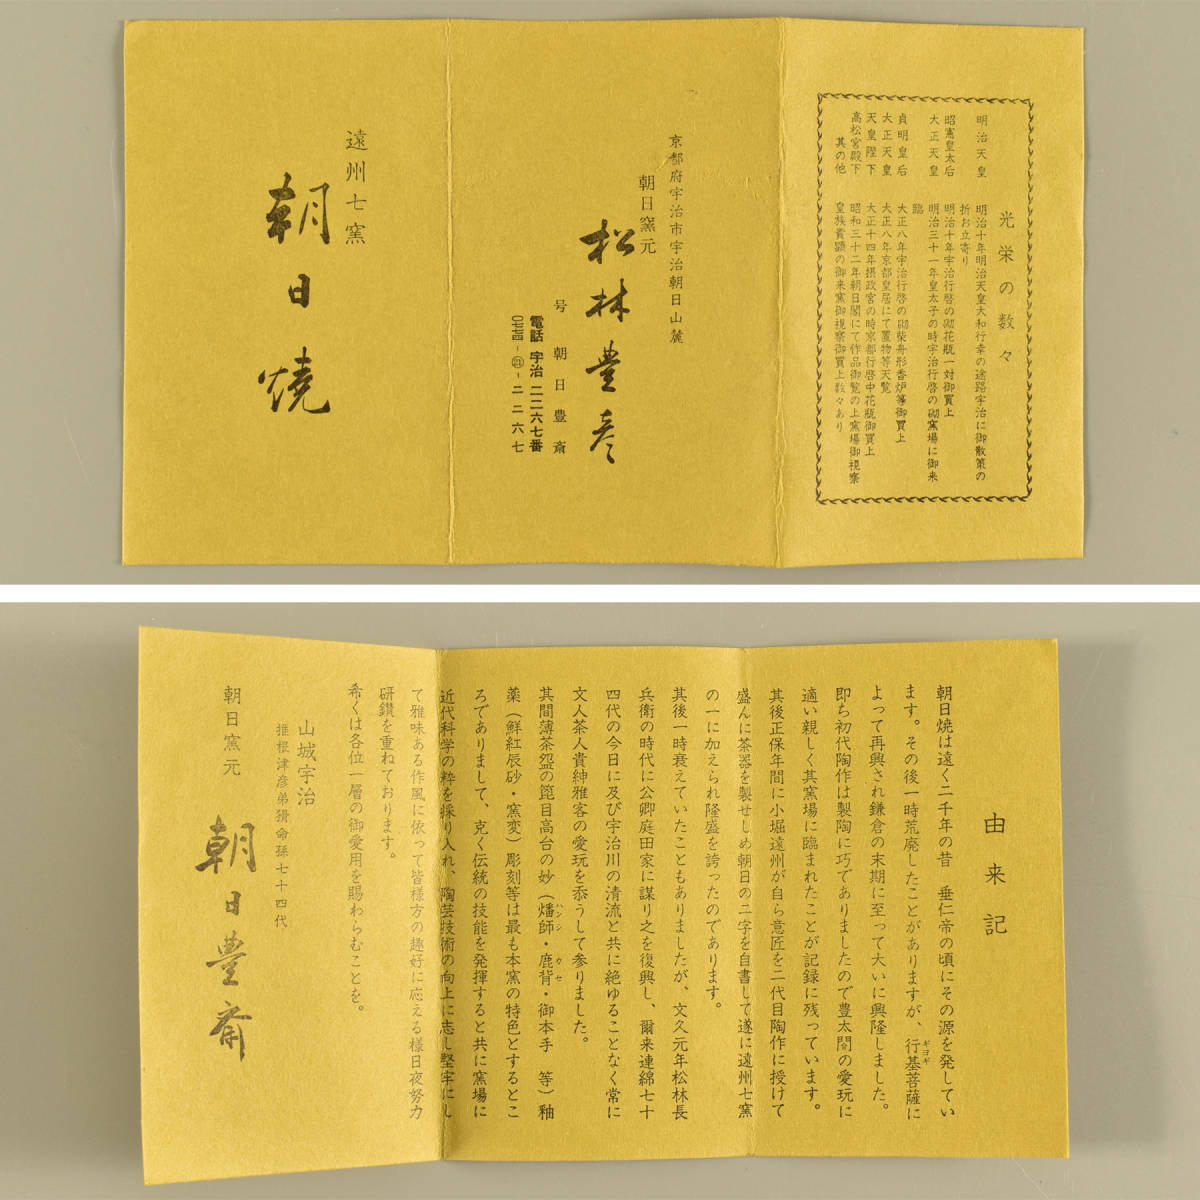 光栄の数々
明治天皇　明治十年明治天皇大和行幸の途路宇治に御散策の
折お立寄り
昭憲皇太后　明治十年宇治行啓の砌花瓶一対御買上
大正天皇　明治三十一年皇太子の時宇治行啓の砌窯場に御来
臨
貞明皇后　大正八年宇治行啓の砌柴舟形香炉等御買上
大正天皇　大正八年京都皇居にて置物等天覧
天皇陛下　大正十四年摂政宮の時京都行啓中花瓶御買上
高松宮殿下　昭和三十二年朝日閣にて作品御覧の上窯場御視察
其の他　皇族貴顕の御来窯御視察御買上数々あり
京都府宇治市宇治朝日山麓
朝日窯元
松林豊彦
号　朝日豊斎
電話　宇治　二二六七番
〇七七四-㉑-二二六七
遠州七窯
朝日焼
由来記
朝日焼は遠く二千年の昔　垂仁帝の頃にその源を発してい
ます。その後一時荒廃したことがありますが、行基菩薩に
ギヨギ
よって再興され鎌倉の末期に至って大いに興隆しました。
即ち初代陶作は製陶に巧でありましたので豊太閤の愛玩に
適い親しく其窯場に臨まれたことが記録に残っています。
其後正保年間に小堀遠州が自ら意匠を二代目陶作に授けて
盛んに茶器を製せしめ朝日の二字を自書して遂に遠州七窯
の一に加えられ隆盛を誇ったのであります。
其後一時衰えていたこともありましたが、文久元年松林長
兵衛の時代に公卿庭田家に謀り之を復興し、爾来連綿七十
四代の今日に及び宇治川の清流と共に絶ゆることなく常に
文人茶人貴紳雅客の愛玩を忝うして参りました。
其間薄茶盌の箆目高台の妙（燔師・鹿背・御本手　等）釉
ハンシ　カセ
薬（鮮紅辰砂・窯変）彫刻等は最も本窯の特色とするとこ
ろでありまして、克く伝統の技能を発揮すると共に窯場に
近代科学の粋を採り入れ、陶芸技術の向上に志し堅牢にし
て雅味ある作風に依って皆様方の趣好に応える様日夜努力
研鑽を重ねております。
希くは各位一層の御愛用を賜わらむことを。
山城宇治
推根津彦弟猾命孫七十四代
朝日窯元　朝日豊斎